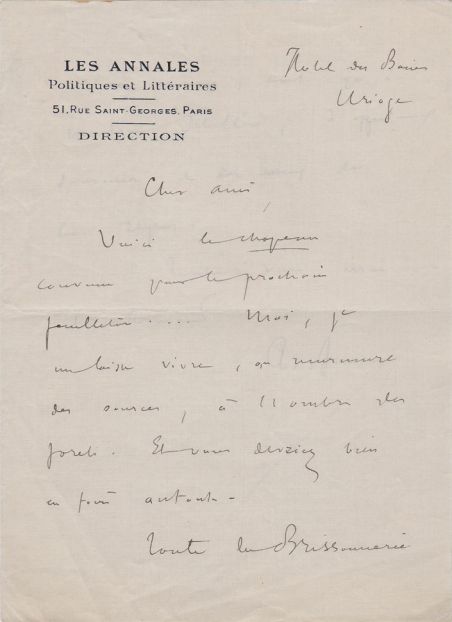 LES ANNALES
Politiques et Littéraires
51, RUE SAINT-GEORGES, PARIS
DIRECTION
Hotel des Bains
Uriage
Cher ami,
Voici le chapeau
convenu pour le prochain
feuilleton .... Moi, je
me laisse vivre, au murmure
des sources, à l'ombre des
forets. Et vous devriez bien
en faire autant -
Toute la Brissonnerie